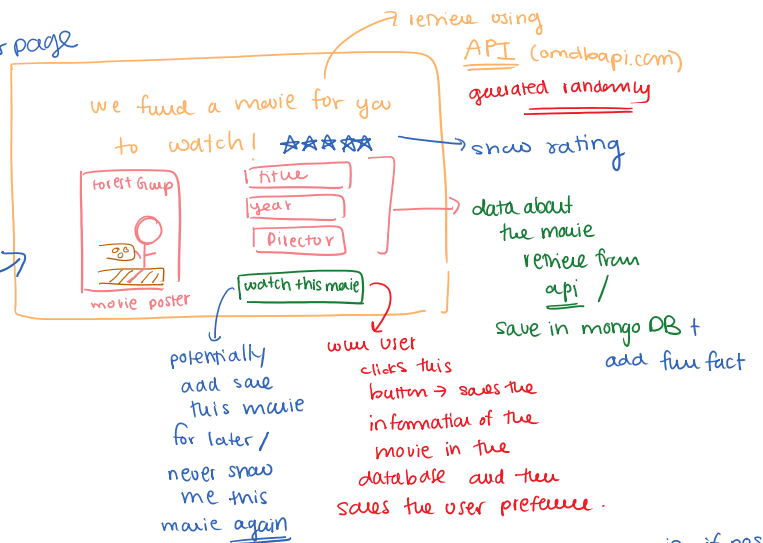 page
retrieve using
API (omdbapi.com)
generated randomly
we found a movie for you
to watch!
show rating
Forest Gump
title
year
Director
movie poster
watch this movie
data about
the movie
retrieve from
api /
save in mongo DB +
add fun fact
potentially
add save
this movie
for later /
never show
me this
movie again
when user
clicks this
button → saves the
information of the
movie in the
database and then
saves the user preference.